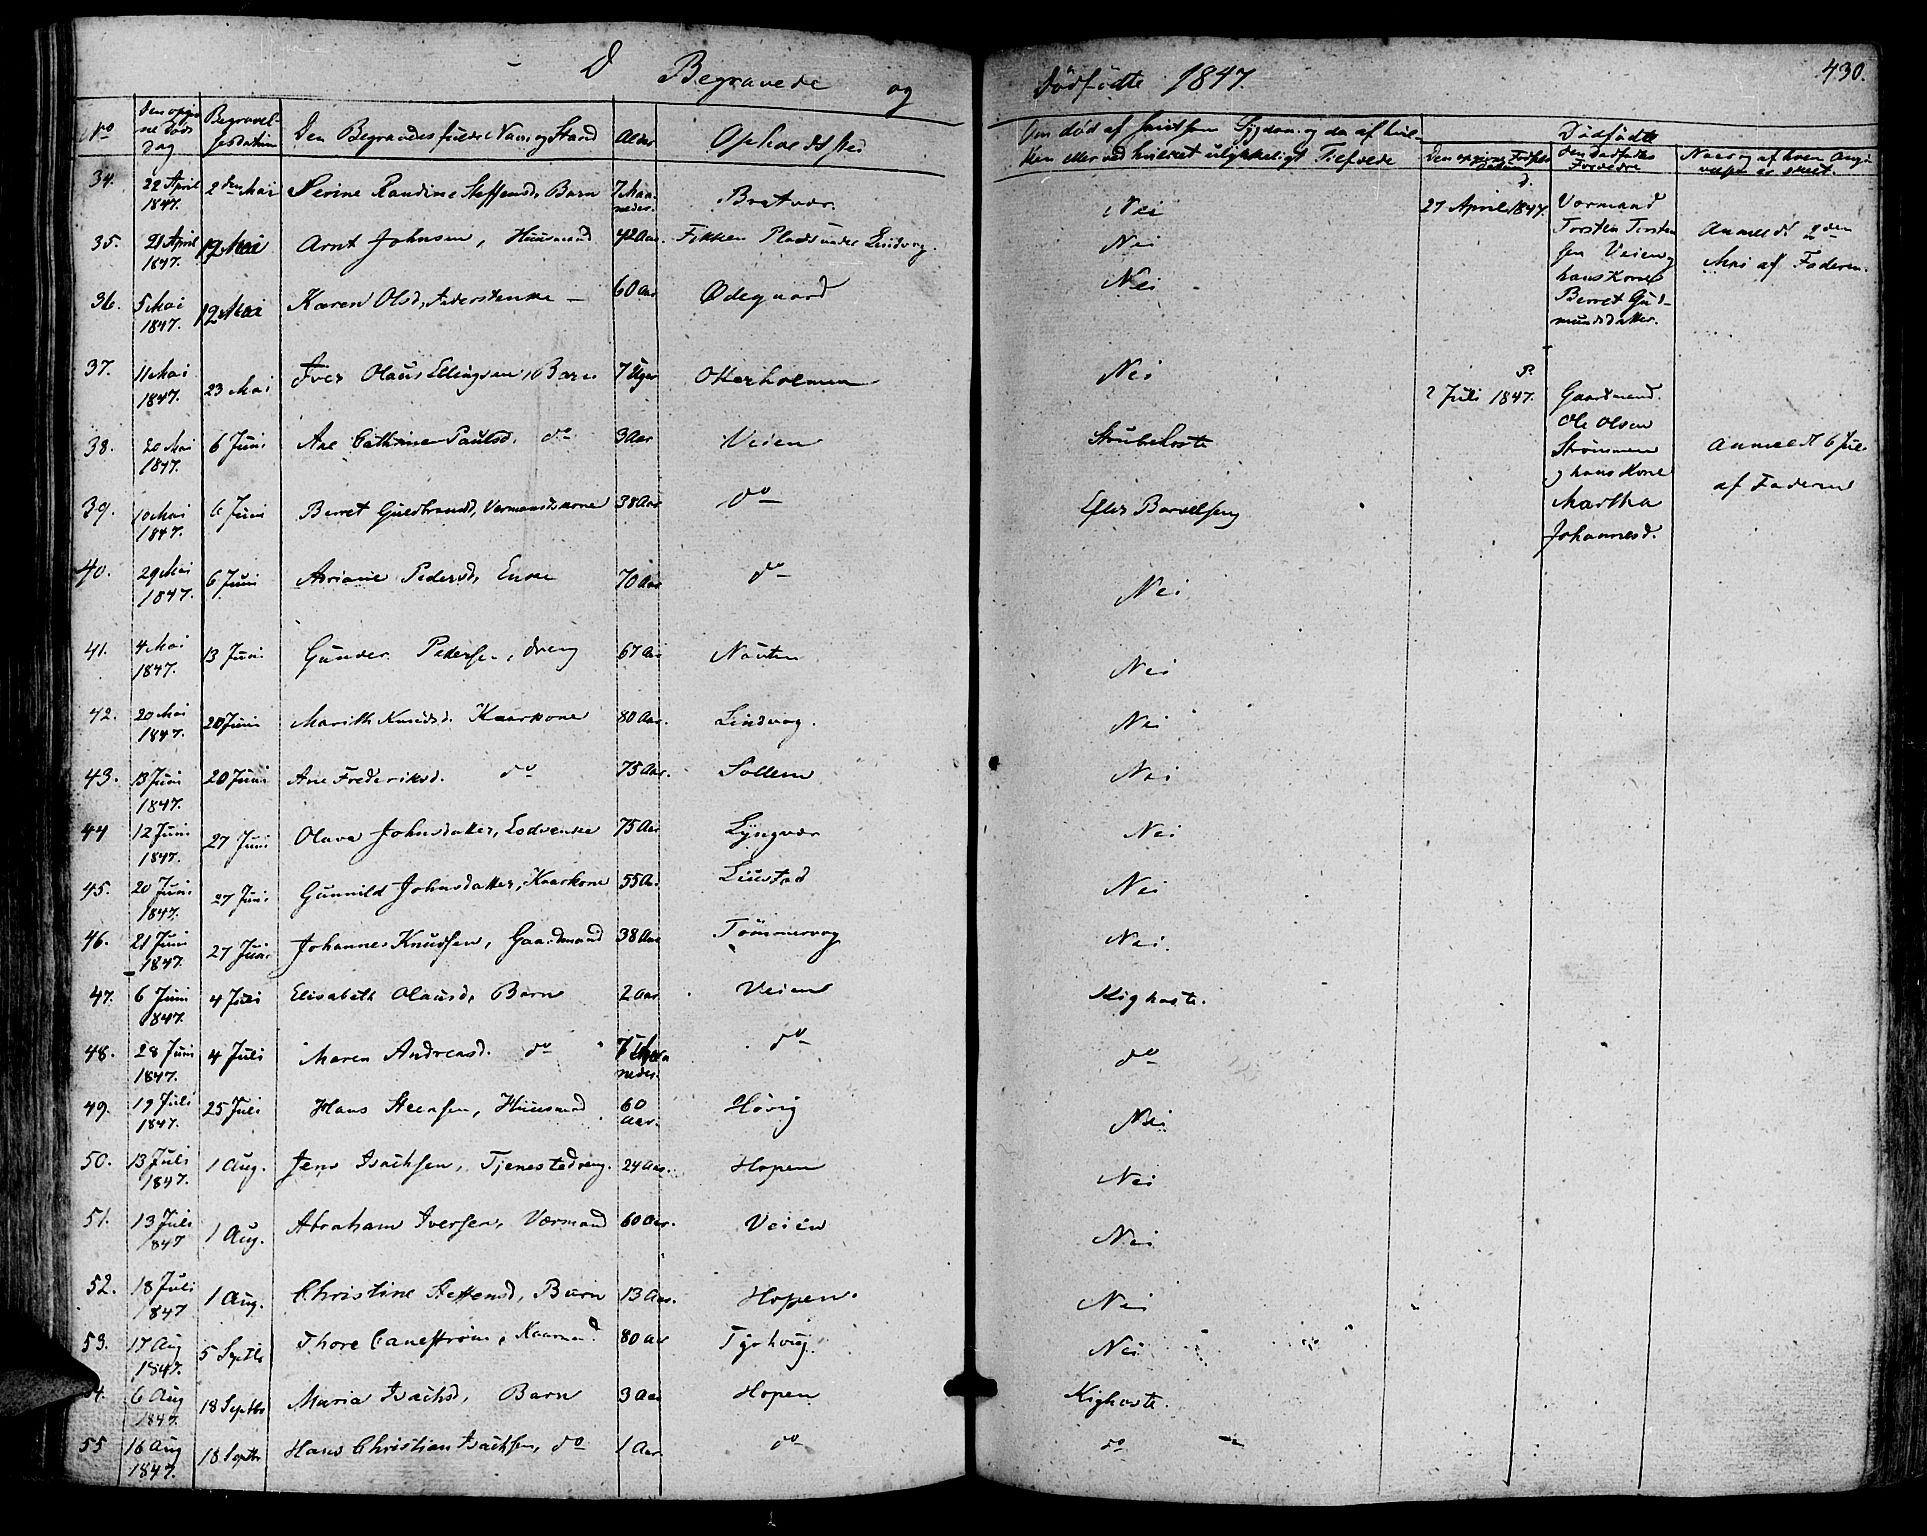 D Begravede og
Dödfödte 1847.
430.
No
Begravel-
sesdatum
Den Begravedes fulde Navn og Stand
Alder
Opholdssted
Dödfödte
34. 22 April 1847. 2den Mai Serine Randine Steffensd, Barn 7 Maaneder. Bratvær. Nei
35. 21 April 1847. 12 Mai Arnt Johnsen, Huusmand 42 Aar. Plads under Lindvog. Nei
36. 5 Mai 1847. 12 Mai Karen Olsd, 60 Aar Ødegaard Nei
37. 11 Mai 1847. 23 Mai Iver Olaus Ellingsen, Barn 7 Uger Otterholmen Nei
38. 20 Mai 1847. 6 Juni Ane Cathrine Paulsd. do 3 Aar Veien Strubehoste
39. 10 Mai 1847. 6 Juni Berret Guldbrandsd, 38 Aar do Efter Barselseng
40. 29 Mai 1847. 6 Juni Pedersd, Enke 70 Aar do Nei
41. 4 Mai 1847. 13 Juni Gunder Pedersen, dreng 67 Aar Nei
42. 20 Mai 1847. 20 Juni Marith Knudsd. Kaarkone 80 Aar. Lindvog. Nei
43. 13 Juni 1847. 20 Juni Ane Frederiksd. do 75 Aar. Sollem Nei
44 12 Juni 1847. 27 Juni Olava Johnsdatter, 75 Aar Lyngvær Nei
45. 20 Juni 1847. 27 Juni Gunnild Johnsdatter, Kaarkone 55 Aar Nei
46. 21 Juni 1847. 27 Juni Johannes Knudsen, Gaardmand 38 Aar Tömmervog Nei.
47. 6 Juni 1847. 4 Juli Elisabeth Olausd, Barn 2 Aar Veien Kighoste.
48. 28 Juni 1847. 4 Juli Maren Andreasd. do 7 Maaneder. do do
49. 19 Juli 1847. 25 Juli Hans Steensen, Huusmand 60 Aar. Hövig Nei
50. 13 Juli 1847. 1 Aug. Jens Isachsen, Tjenestedreng. 24 Aar. Hopen Nei
51. 13 Juli 1847 1 Aug. Abraham Iversen, Vormand 60 Aar. Veien Nei
52. 18 Juli 1847 1 Aug. Christine Steffensd, Barn 13 Aar. Hopen. Nei
53. 17 Aug 1847. 5 Septbr Thore Kaarmand 80 Aar Nei
54. 6 Aug 1847. 18 Septbr Maria Isachsd, Barn 3 Aar Hopen Kighoste.
55 16 Aug 1847. 18 Septbr Hans Christian Isachsen, do 1 Aar do do
27 April 1847.
Vormand
Torsten Torsten
sen Veien og
hans Kone
Berret Gud-
mundsdatter.
Anmeldt 9den
Mai af Faderen.
2 Juli 1847.
Gaardmand
Ole Olsen
Strömmen
og hans Kone
Martha
Johannesd.
Anmeldt 6 Juli
af Faderen